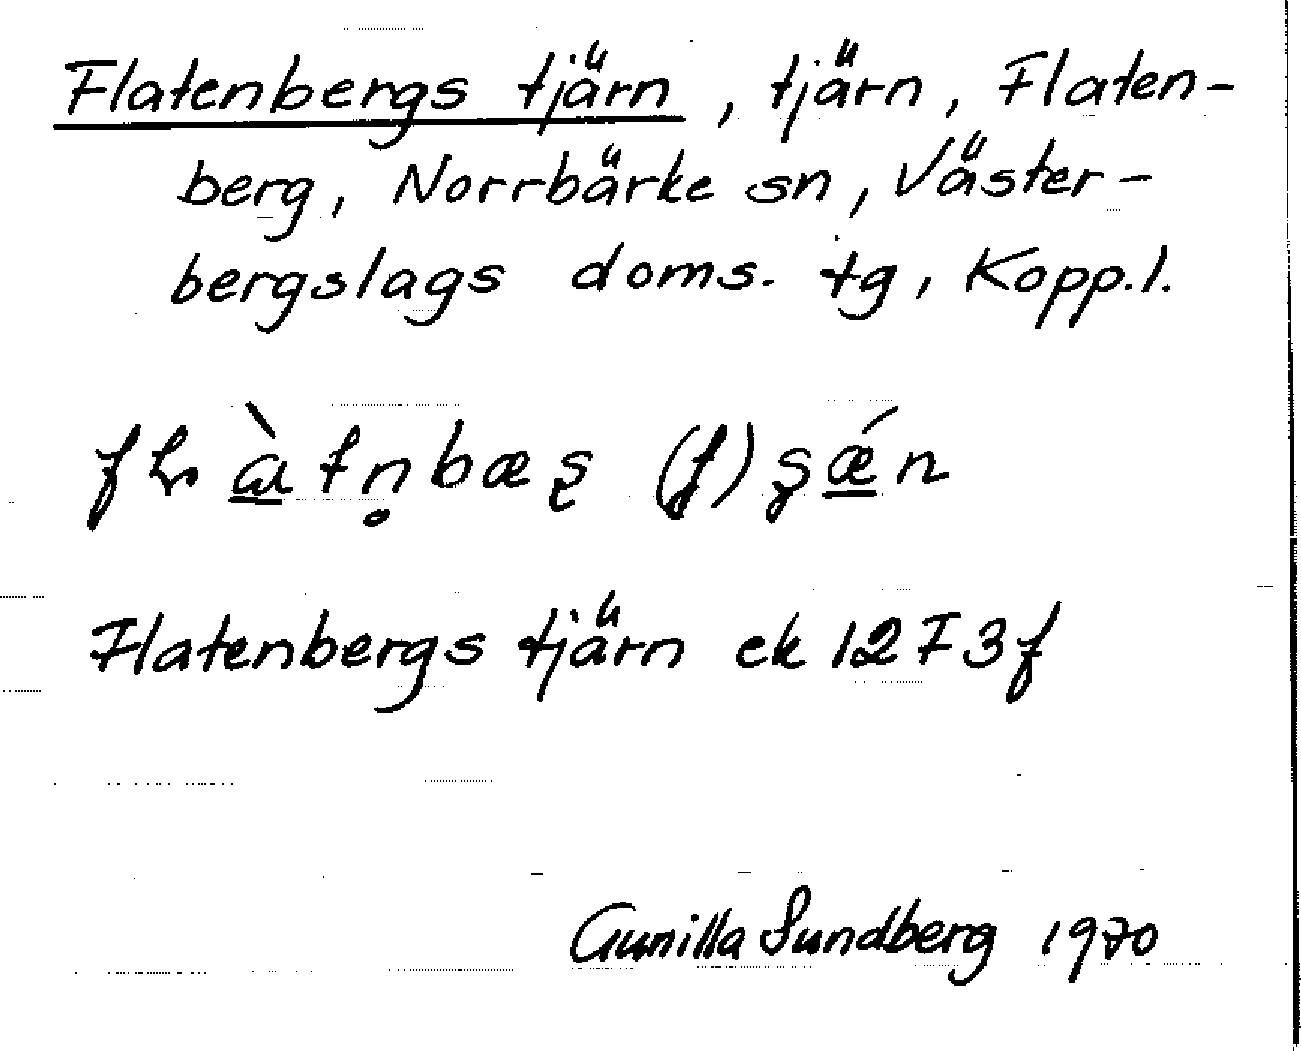 Flatenbergs tjärn, tjärn, Flaten-
berg, Norrbärke sn, Väster-
bergslags doms. tg, Kopp.l.
Flatenbergs tjärn ek 12F3f
Gunilla Sundberg 1970